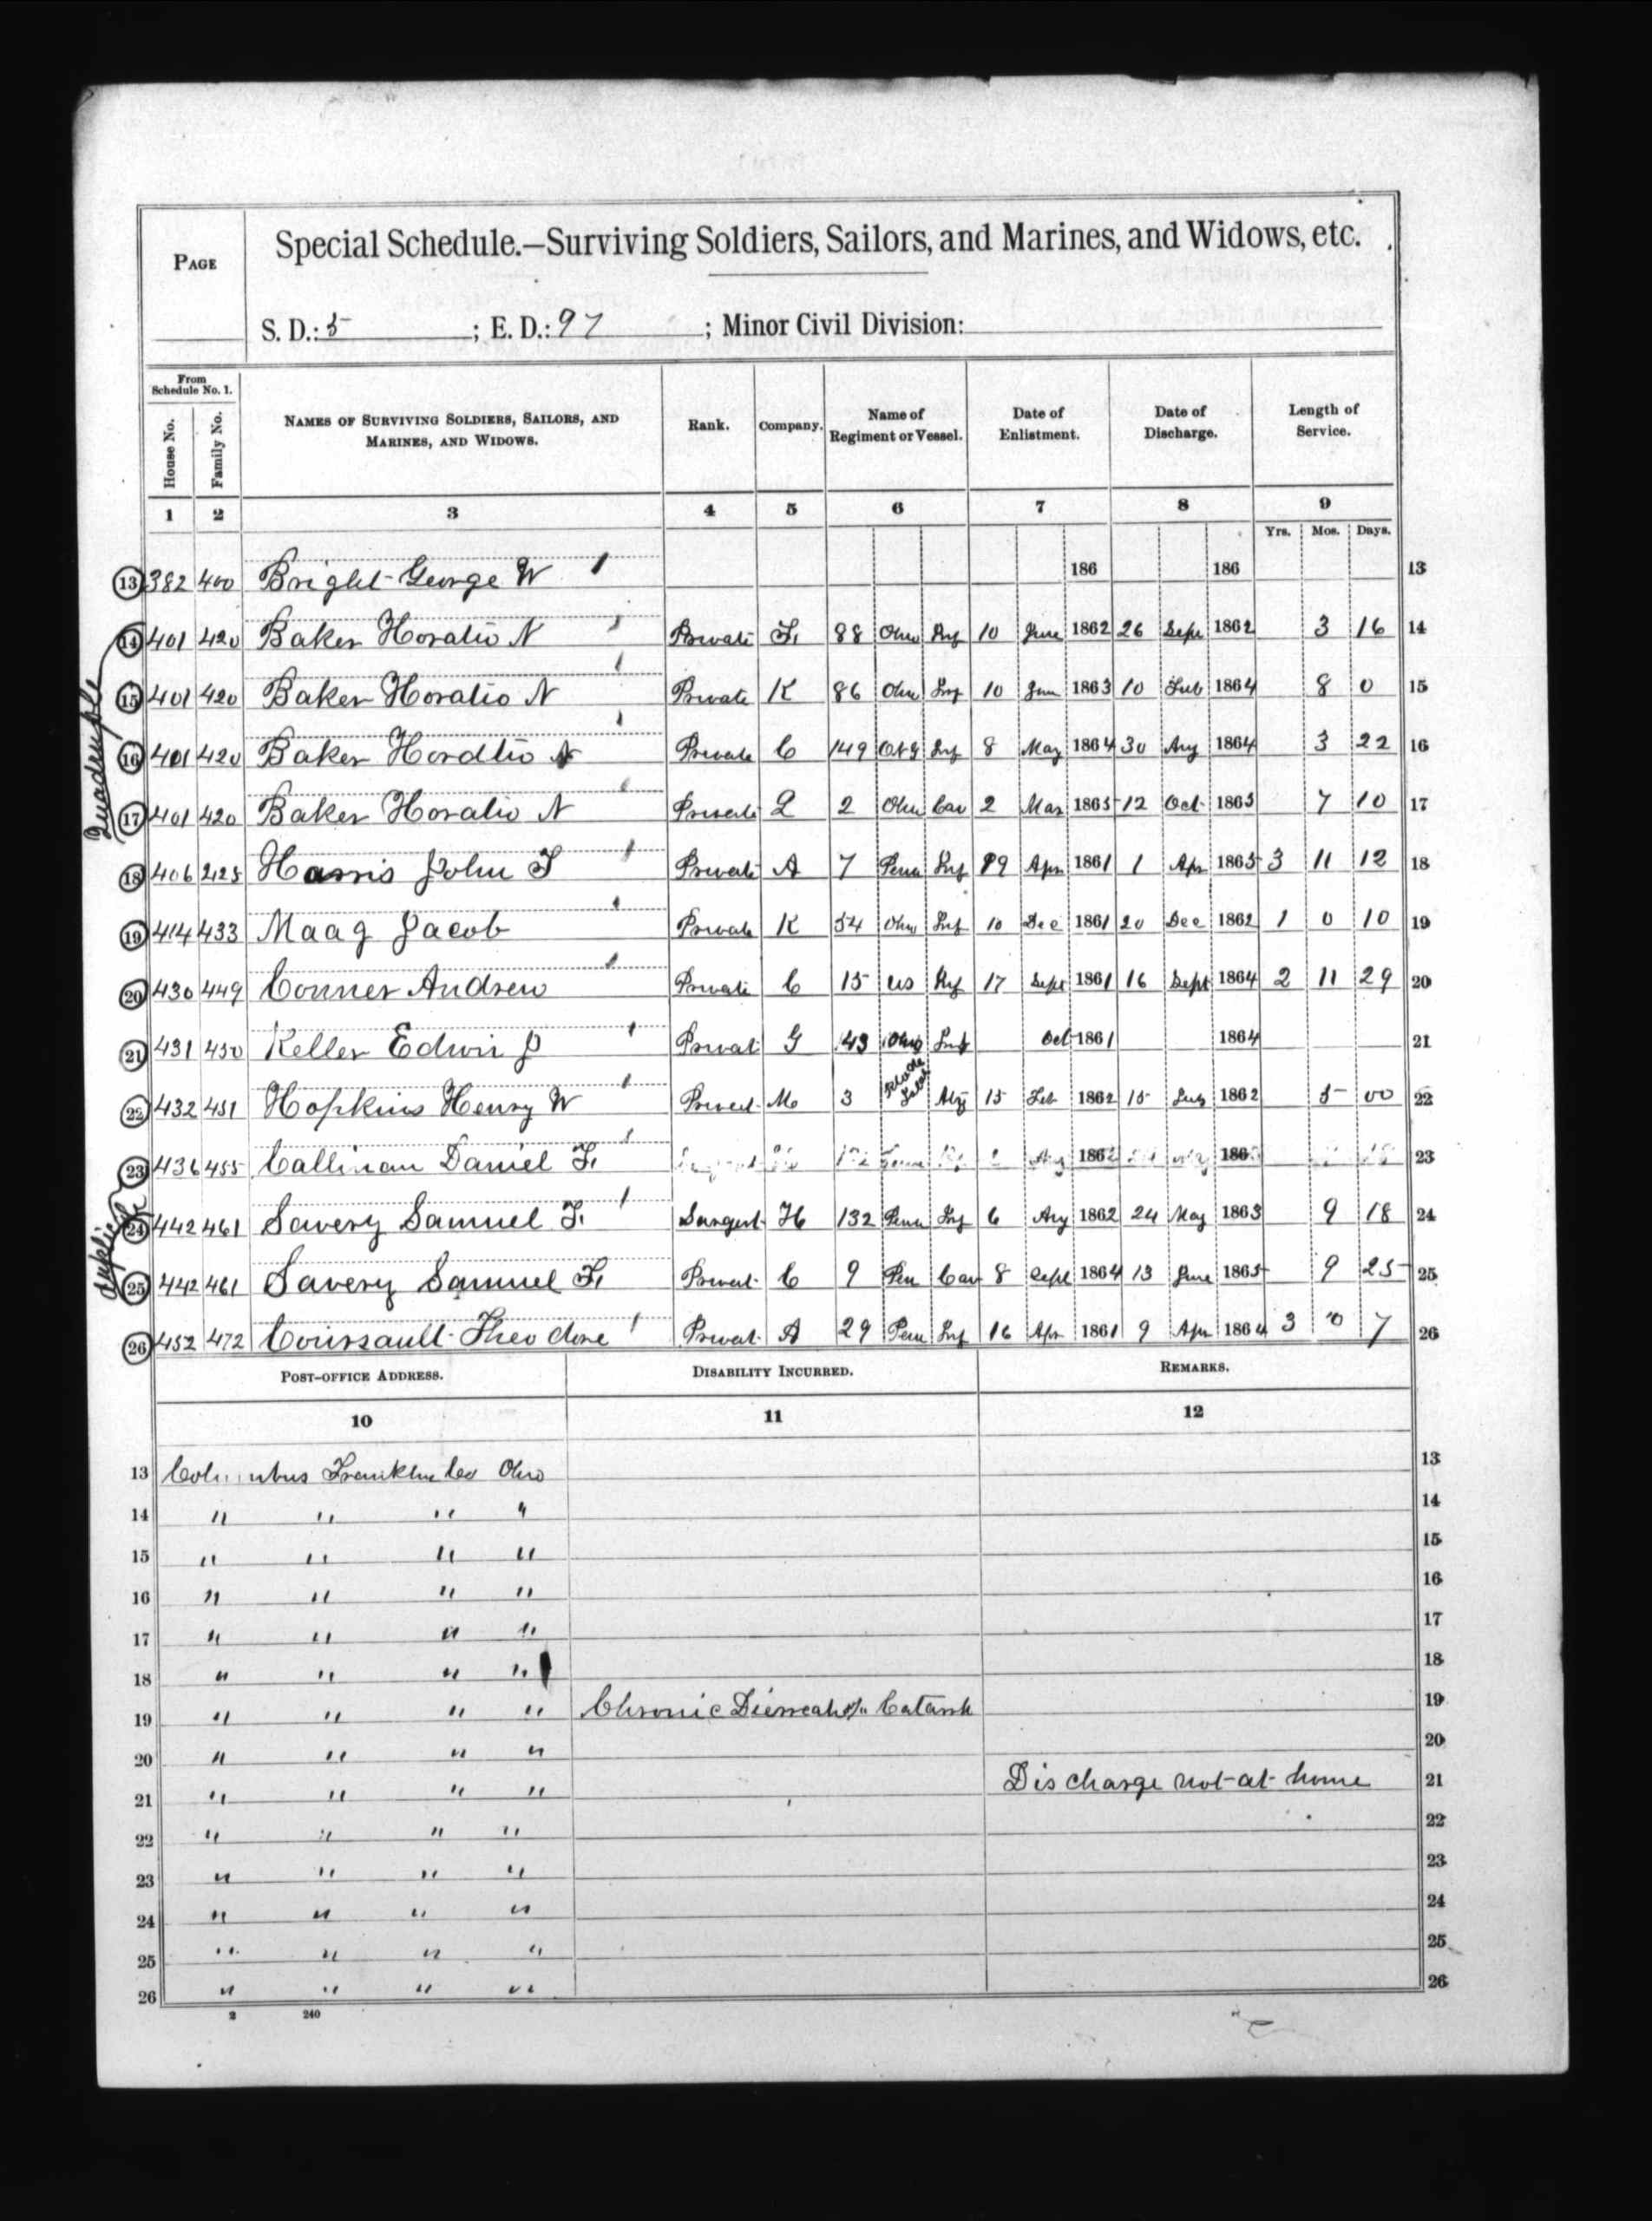 PAGE
Special Schedule.—Surviving Soldiers, Sailors, and Marines, and Widows, etc.
S. D.: 5 ; E. D.: 97 ; Minor Civil Division:
From Schedule No. 1.
House No. Family No. NAMES OF SURVIVING SOLDIERS, SAILORS, AND MARINES, AND WIDOWS. Rank. Company. Name of Regiment or Vessel. Date of Enlistment. Date of Discharge. Length of Service.
1 2 3 4 5 6 7 8 9
Yrs. Mos. Days.
13 382 400 Bright George W 1 186 186 13
14 401 420 Baker Horatio N Private F 88 Ohio Inf 10 June 1862 26 Sept 1862 3 16 14
Quadruple
15 401 420 Baker Horatio N Private K 86 Ohio Inf 10 Jun 1863 10 Feb 1864 8 0 15
16 401 420 Baker Horatio N Private C 149 ONG Inf 8 May 1864 30 Aug 1864 3 22 16
17 401 420 Baker Horatio N Private L 2 Ohio Cav 2 Mar 1865 12 Oct 1865 7 10 17
18 406 425 Harris John T Private A 7 Penn Inf 19 Apr 1861 1 Apr 1865 3 11 12 18
19 414 433 Maag Jacob Private K 54 Ohio Inf 10 Dec 1861 20 Dec 1862 1 0 10 19
20 430 449 Conner Andrew Private C 15 US Inf 17 Sept 1861 16 Sept 1864 2 11 29 20
21 431 450 Keller Edwin J Privat G 43 Ohio Inf Oct 1861 1864 21
22 432 451 Hopkins Henry W Privat M 3 Rhode Island 15 Feb 1862 15 July 1862 5 00 22
23 436 455 Callinan Daniel F 1862 186 23
Duplicate
24 442 461 Savery Samuel F. Sargent H 132 Penn Inf 6 Aug 1862 24 May 1863 9 18 24
25 442 461 Savery Samuel F. Privat C 9 Pen Cav 8 Sept 1864 13 June 1865 9 25 25
26 452 472 Theodore Privat A 29 Penn Inf 16 Apr 1861 9 Apr 1864 3 0 7 26
POST-OFFICE ADDRESS. DISABILITY INCURRED. REMARKS.
10 11 12
13 Columbus Franklin Co Ohio 13
14 " " " " 14
15 " " " " 15
16 " " " " 16
17 " " " " 17
18 " " " " 18
19 " " " " Chronic Catarrh 19
20 " " " " 20
21 " " " " Discharge not at home 21
22 " " " " 22
23 " " " " 23
24 " " " " 24
25 " " " " 25
26 " " " " 26
2 240